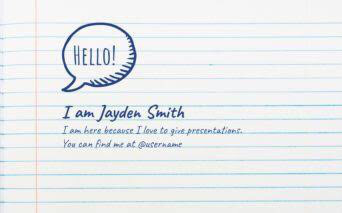 HELLO!
I am Jayden Smith
I am here because I love to give presentations.
You can find me at @username